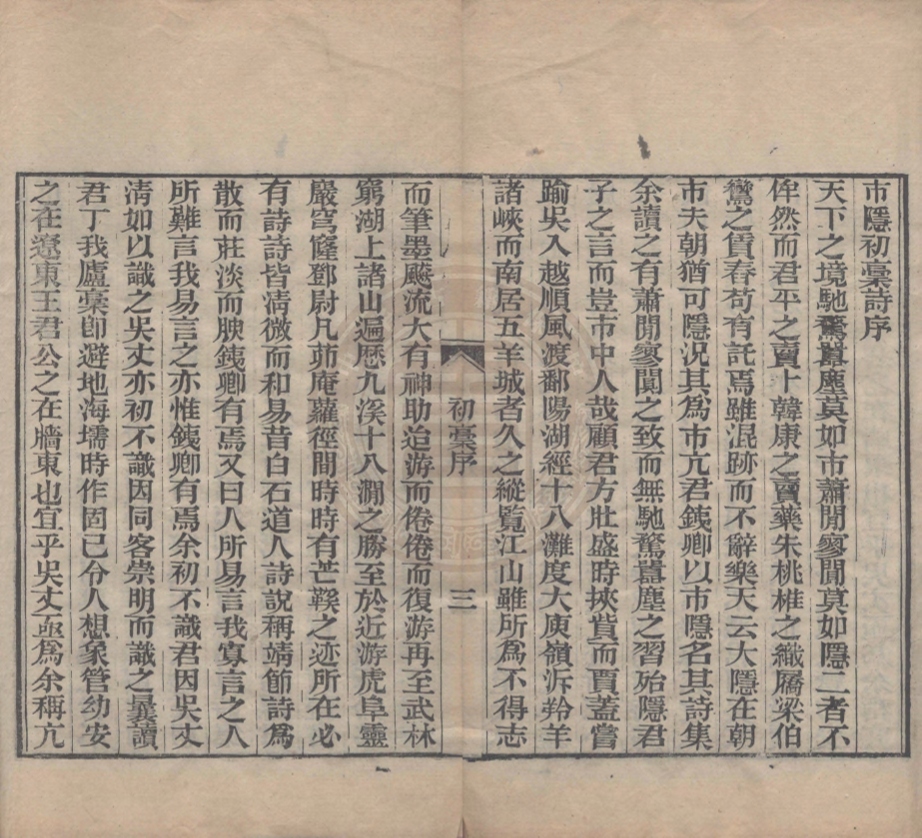 市隱初稾詩序
天下之境馳騖囂塵莫如市蕭閒寥闃莫如隱二者不
侔然而君平之賣卜韓康之賣藥朱桃椎之織屩梁伯
鸞之賃舂苟有託焉雖混跡而不辭樂天云大隱在朝
市夫朝猶可隱況其爲市亢君銕卿以市隱名其詩集
余讀之有蕭閒寥闃之致而無馳騖囂塵之習殆隱君
子之言而豈市中人哉顧君方壯盛時挾貲而賈蓋嘗
踰吳入越順風渡鄱陽湖經十八灘度大庾嶺泝羚羊
諸峽而南居五羊城者久之縱覽江山雖所爲不得志
初稾序
三
而筆墨飈流大有神助迨游而倦倦而復游再至武林
窮湖上諸山遍歷九溪十八澗之勝至於近游虎阜靈
巖穹窿鄧尉凡茆庵蘿徑閒時時有芒鞵之迹所在必
有詩詩皆淸微而和易昔白石道人詩說稱靖節詩爲
散而莊淡而腴銕卿有焉又曰人所易言我寡言之人
所難言我易言之亦惟銕卿有焉余初不識君因吳丈
淸如以識之吳丈亦初不識因同客崇明而識之曩讀
君丁我廬稾卽避地海壖時作固已令人想象管幼安
之在遼東王君公之在牆東也宜乎吳丈亟爲余稱亢